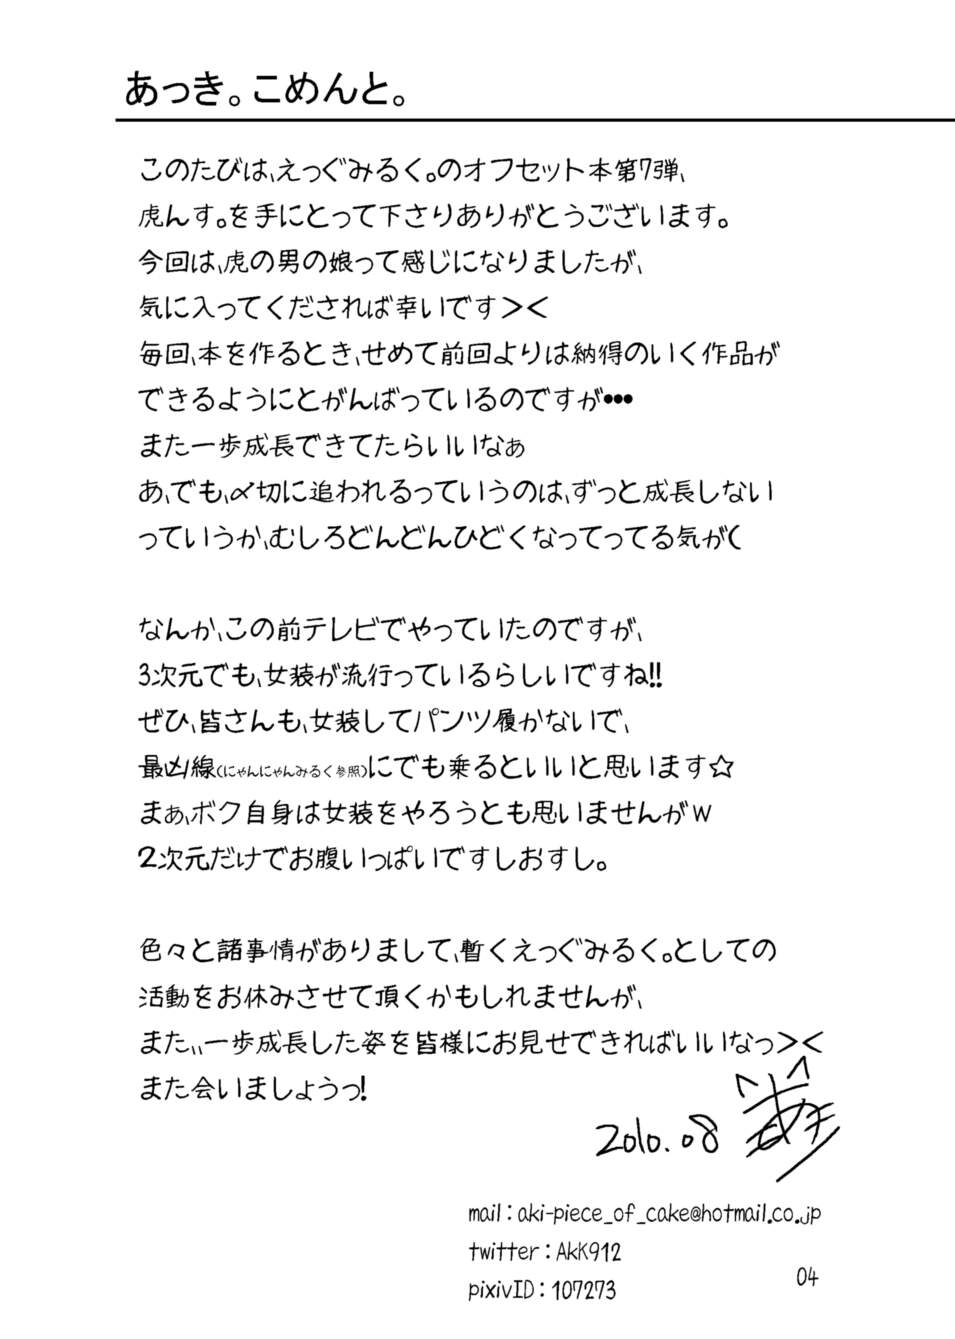 あっき。こめんと。
このたびは、えっぐみるく。のオフセット本第7弾、
虎んす。を手にとって下さりありがとうございます。
今回は、虎の男の娘って感じになりましたが、
気に入ってくだされば幸いです＞＜
毎回、本を作るとき、せめて前回よりは納得のいく作品が
できるようにとがんばっているのですが•••
また一歩成長できてたらいいなぁ
あ、でも、〆切に追われるっていうのは、ずっと成長しない
っていうか、むしろどんどんひどくなってってる気が(
なんか、この前テレビでやっていたのですが、
3次元でも、女装が流行っているらしいですね!!
ぜひ、皆さんも、女装してパンツ履かないで、
最凶線(にゃんにゃんみるく参照)にでも乗るといいと思います☆
まぁ、ボク自身は女装をやろうとも思いませんがw
2次元だけでお腹いっぱいですしおすし。
色々と諸事情がありまして、暫くえっぐみるく。としての
活動をお休みさせて頂くかもしれませんが、
また、、一歩成長した姿を皆様にお見せできればいいなっ＞＜
また会いましょうっ!
2010.08
mail:aki-piece_of_cake@hotmail.co.jp
twitter:AkK912
pixivID:107273
04